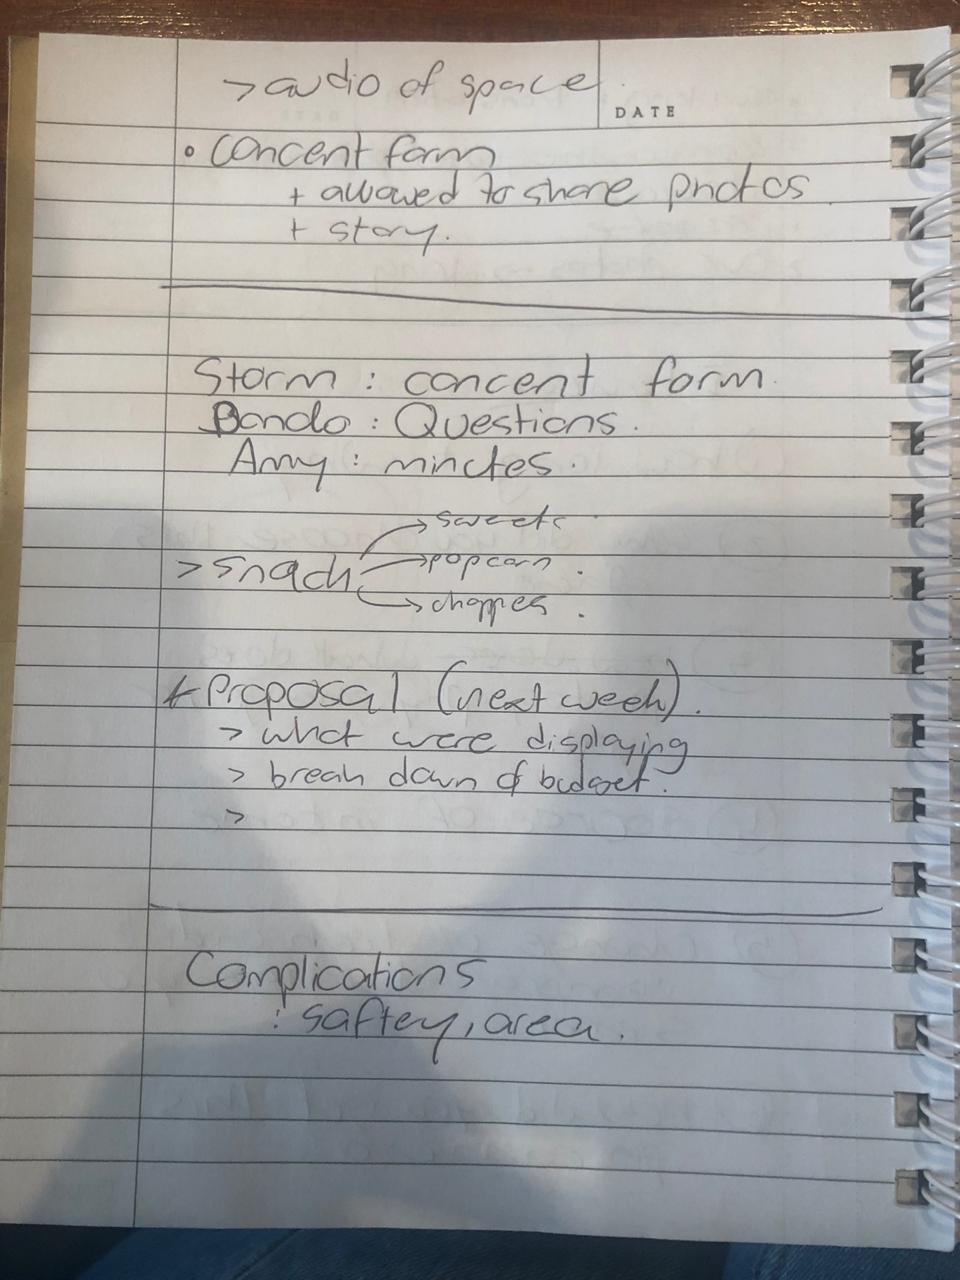 > audio of space
DATE
• concent form
+ allowed to share photos
+ story.
Storm : concent form.
Bando : Questions.
Amy : minctes.
> snack → sweets
→ popcorn.
→ chappes.
* Proposal (next week).
> what were displaying
> break down of budget.
>
Complications
: saftey, area.